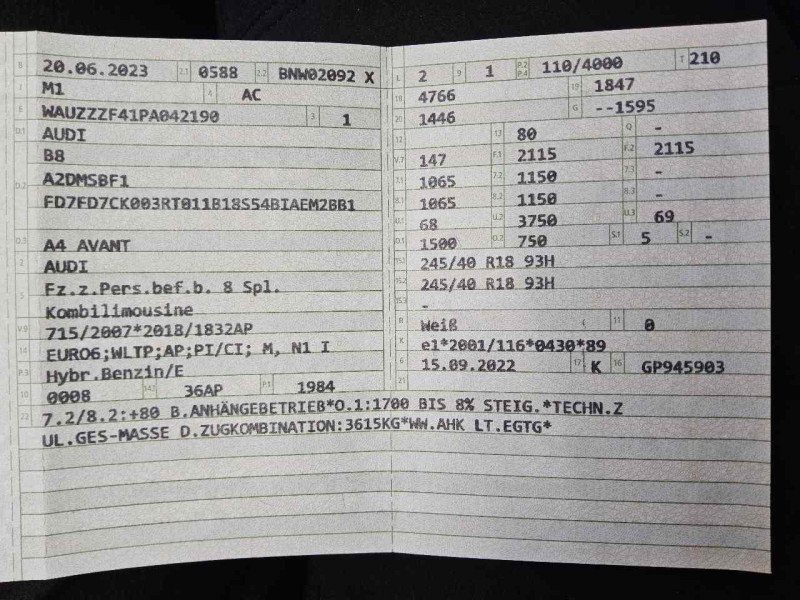 B 20.06.2023 2.1 0588 2.2 BNW02092 X
J M1 4 AC
E WAUZZZF41PA042190 3 1
D.1 AUDI
B8
D.2 A2DMSBF1
FD7FD7CK003RT011B18S54BIAEM2BB1
D.3 A4 AVANT
2 AUDI
5 Fz.z.Pers.bef.b. 8 Spl.
Kombilimousine
V.9 715/2007*2018/1832AP
14 EURO6;WLTP;AP;PI/CI; M, N1 I
P.3 Hybr.Benzin/E
10 0008 14.1 36AP P.1 1984
22 7.2/8.2:+80 B.ANHÄNGEBETRIEB*O.1:1700 BIS 8% STEIG.*TECHN.Z
UL.GES-MASSE D.ZUGKOMBINATION:3615KG*WW.AHK LT.EGTG*
L 2 9 1 P.2 P.4 110/4000 T 210
18 4766 19 1847
20 1446 G --1595
12 13 80 Q -
V.7 147 F.1 2115 F.2 2115
7.1 1065 7.2 1150 7.3 -
8.1 1065 8.2 1150 8.3 -
U.1 68 U.2 3750 U.3 69
O.1 1500 O.2 750 S.1 5 S.2 -
15.1 245/40 R18 93H
15.2 245/40 R18 93H
15.3 -
R Weiß 11 0
K e1*2001/116*0430*89
6 15.09.2022 17 K 16 GP945903
21